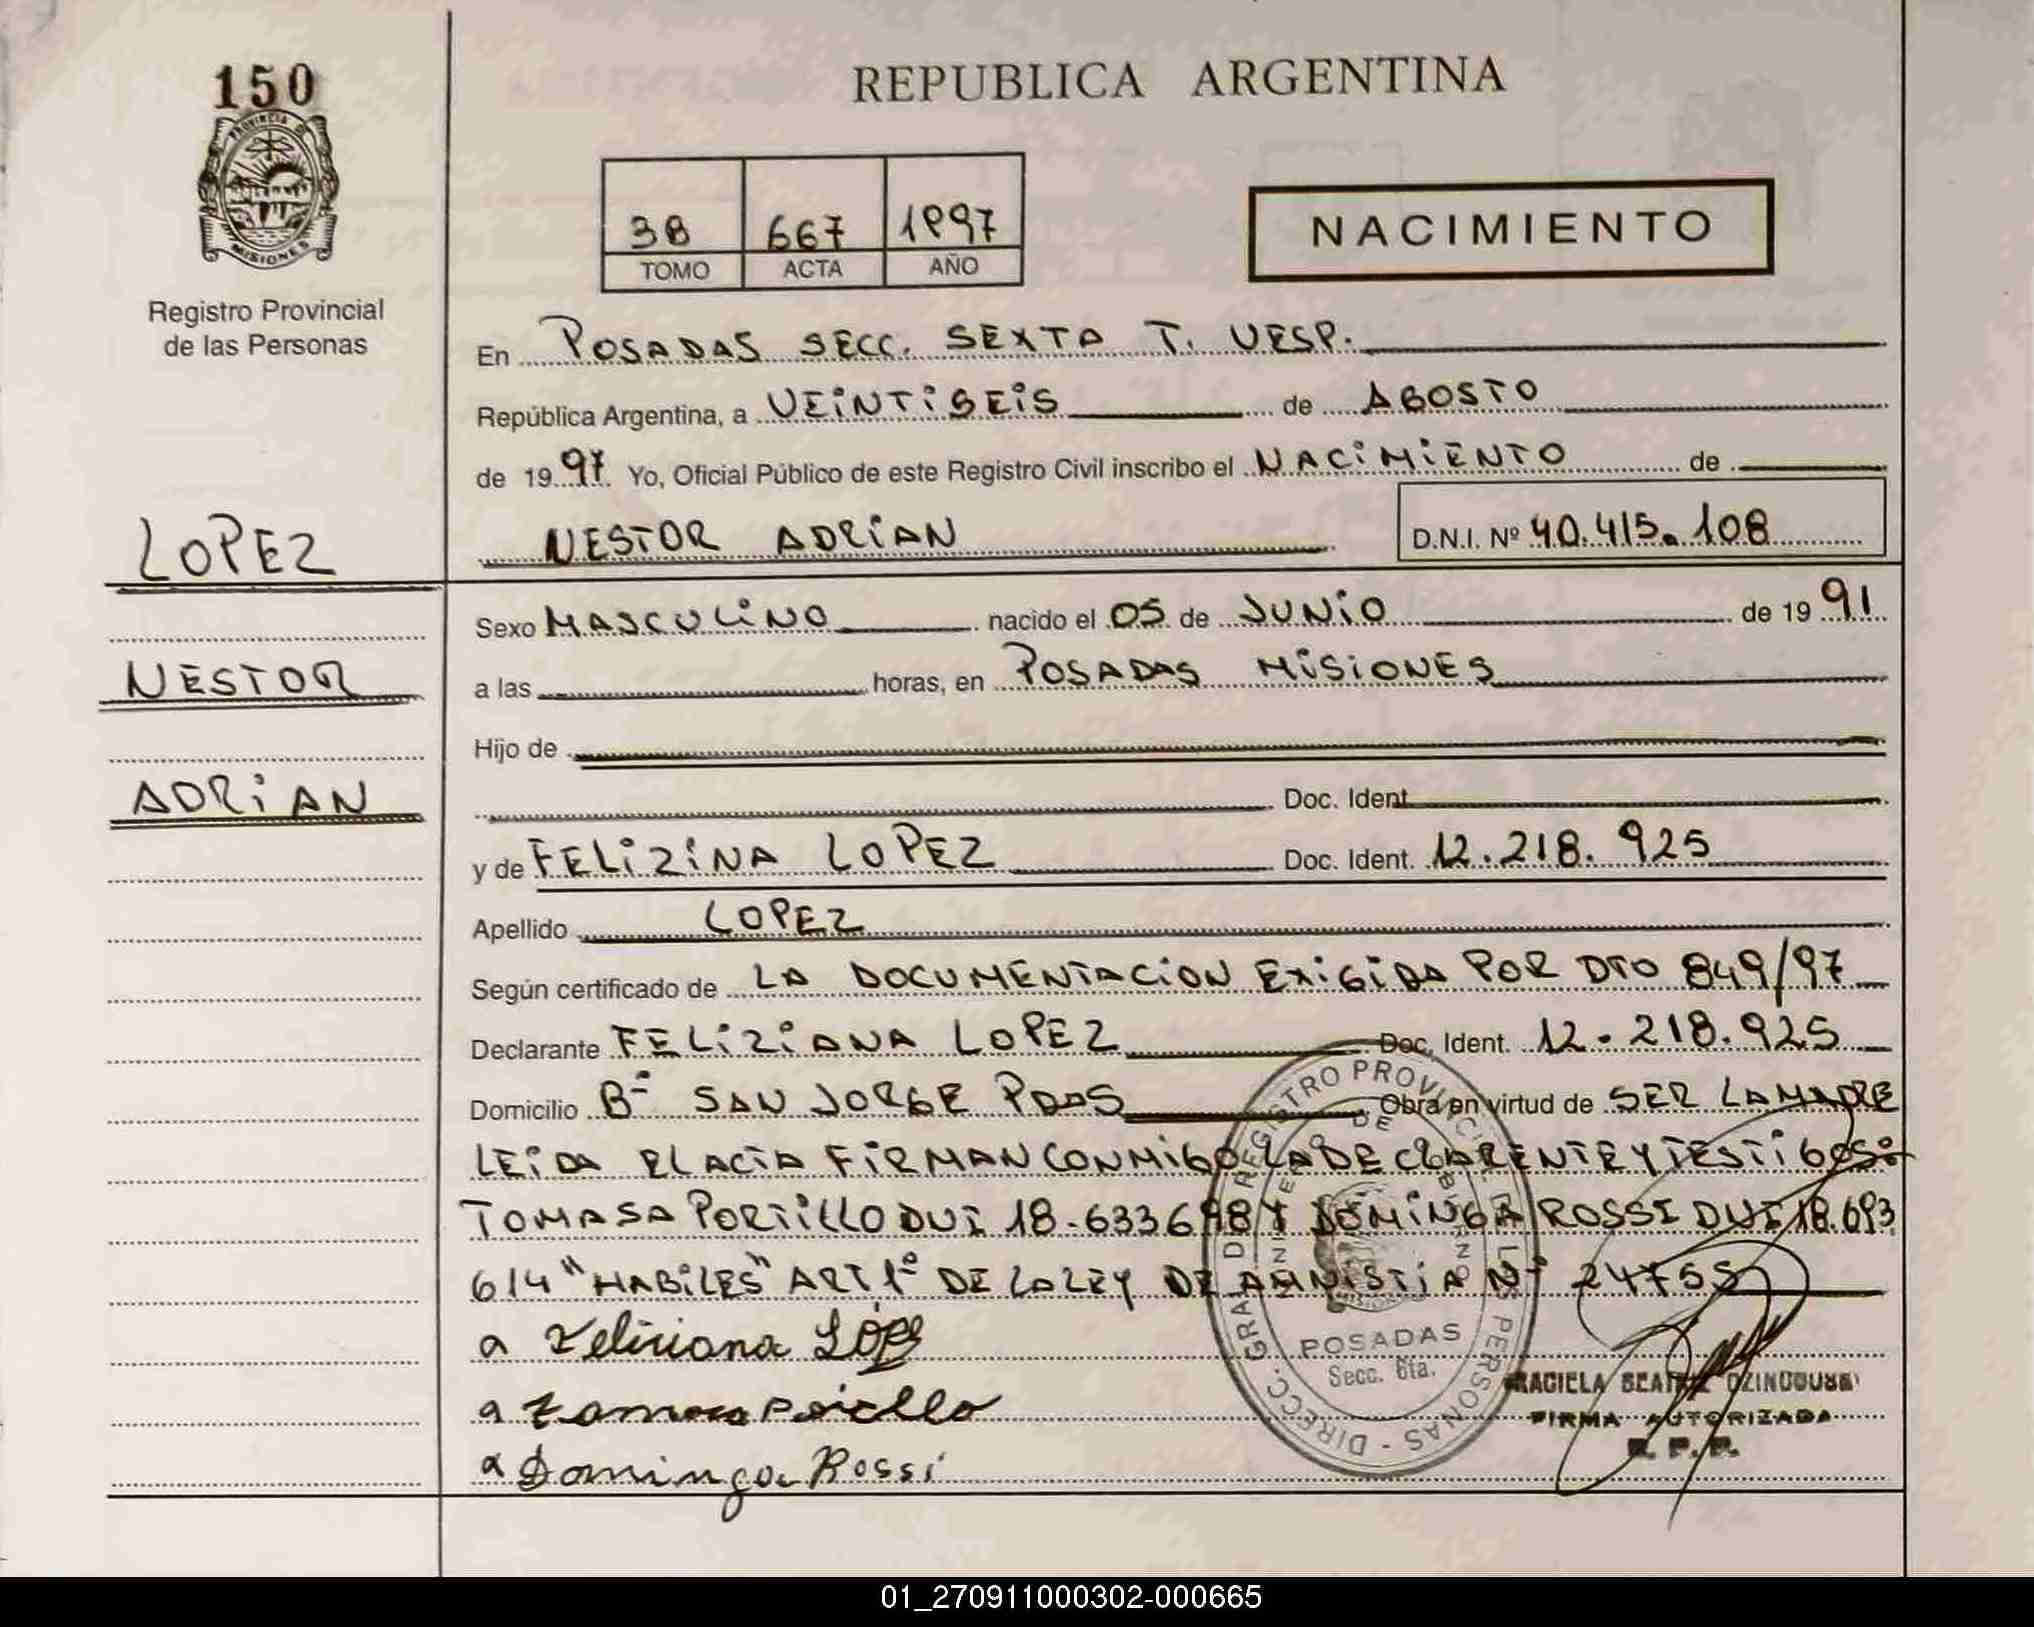 150
PROVINCIA DE
MISIONES
Registro Provincial
de las Personas
REPUBLICA ARGENTINA
38 667 1997
TOMO ACTA AÑO
NACIMIENTO
En POSADAS SECC. SEXTA T. VESP.
República Argentina, a VEiNTiSEiS de AGOSTO
de 1997 Yo, Oficial Público de este Registro Civil inscribo el NACiMiENTO de
NESTOR ADRiAN D.N.I. Nº 40.415.108
LOPEZ
NESTOR
ADRiAN
Sexo MASCULiNO nacido el 05 de JUNiO de 1991
a las horas, en POSADAS MiSiONES
Hijo de
Doc. Ident.
y de FELiZiNA LOPEZ Doc. Ident. 12.218.925
Apellido LOPEZ
Según certificado de LA DOCUMENTACiON EXiGiDA POR DTO 849/97
Declarante FELiZiANA LOPEZ Doc. Ident. 12.218.925
Domicilio Bº SAN JORGE PDAS Obra en virtud de SER LA MADRE
LEiDA EL ACTA FiRMAN CONMiGO LA DECLARENTE Y TESTiGOS:
TOMASA PORTiLLO DUI 18.633698 Y DOMiNGA ROSSI DUI 18.693
614 "HABiLES" ART 1º DE LA LEY DE AMNiSTiA Nº 24755
a Feliciana López
a
a Dominga Rossi
DIRECC. GRAL DE REGISTRO PROVINCIAL DE LAS PERSONAS
POSADAS
Secc. 6ta.
GRACIELA BEATRIZ
FIRMA AUTORIZADA
R. P. P.
01_270911000302-000665